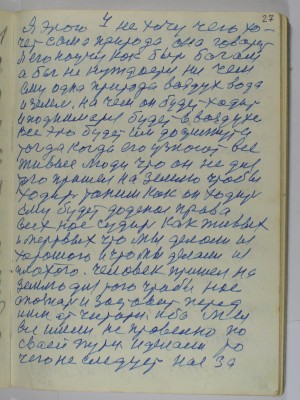 27
Я этого и не хочу чего хо-
чет сама природа она говорит
я его научу как быть богом
а бог не нуждаем ни чем
ему одна природа воздух вода
и земля, на чём он будет ходит
и поднимется будет в воздухе
все это будет им достигнуто
тогда когда его узнают все
живые люди что он не для
того пришел на землю чтобы
ходит таким как он ходит
ему будет додена права
всех нас судит как живых
и мертвых что мы делали и
хорошого и что мы делали и
плохого. человек пришел на
землю для того чтобы нас
и заставит перед
ним отчитатся ибо мы
все имели не провенно по
своей пути и делали то
чего не следует нас за